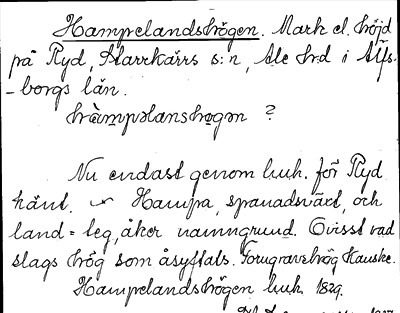 Hampelandshögen. Mark el. höjd
på Ryd, Starrkärrs s:n, Ale hrd i Älfs-
-borgs län.
hàmpəlanshøgən ?
Nu endast genom huk. för Ryd
känt. Hampa, spanadsväxt, och
land = teg, åker namngrund. Ovisst vad
slags hög som åsyftats. Forngravhög kanske.
Hampelandshögen huk. 1829.